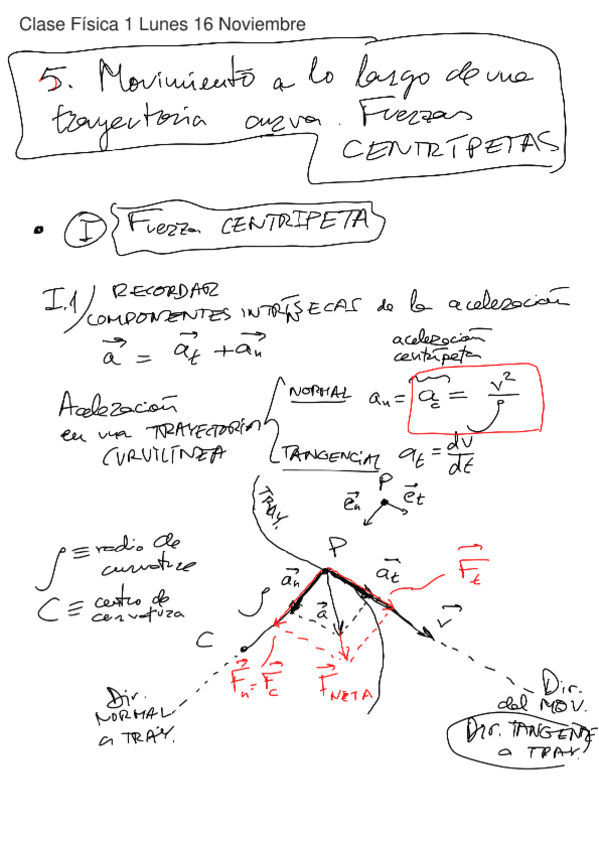 Clase Física 1 Lunes 16 Noviembre
5. Movimiento a lo largo de una
trayectoria curva. Fuerzas
CENTRÍPETAS
• I Fuerza CENTRIPETA
I.1/ RECORDAR
COMPONENTES INTRÍNSECAS de la aceleración
a⃗ = a⃗t + a⃗n
aceleración
centrípeta
Aceleración
en una TRAYECTORIA
CURVILÍNEA
NORMAL an = ac = v²/ρ
TANGENCIAL at = dv/dt
P
e⃗n e⃗t
TRAY.
P
ρ ≡ radio de
curvatura
C ≡ centro de
curvatura
a⃗n a⃗t F⃗t
ρ a⃗ v⃗
C
F⃗n = F⃗c F⃗NETA
Dir.
NORMAL
a TRAY.
Dir.
del MOV.
Dir. TANGENTE
a TRAY.